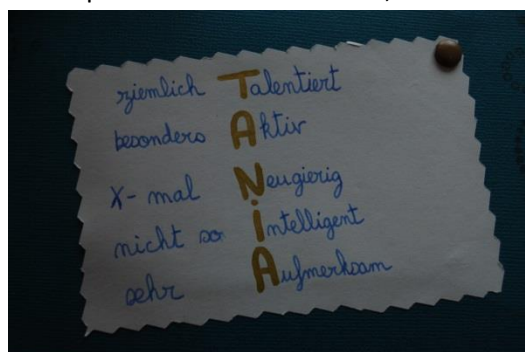 ziemlich Talentiert
besonders Aktiv
X-mal Neugierig
nicht so intelligent
sehr Aufmerksam